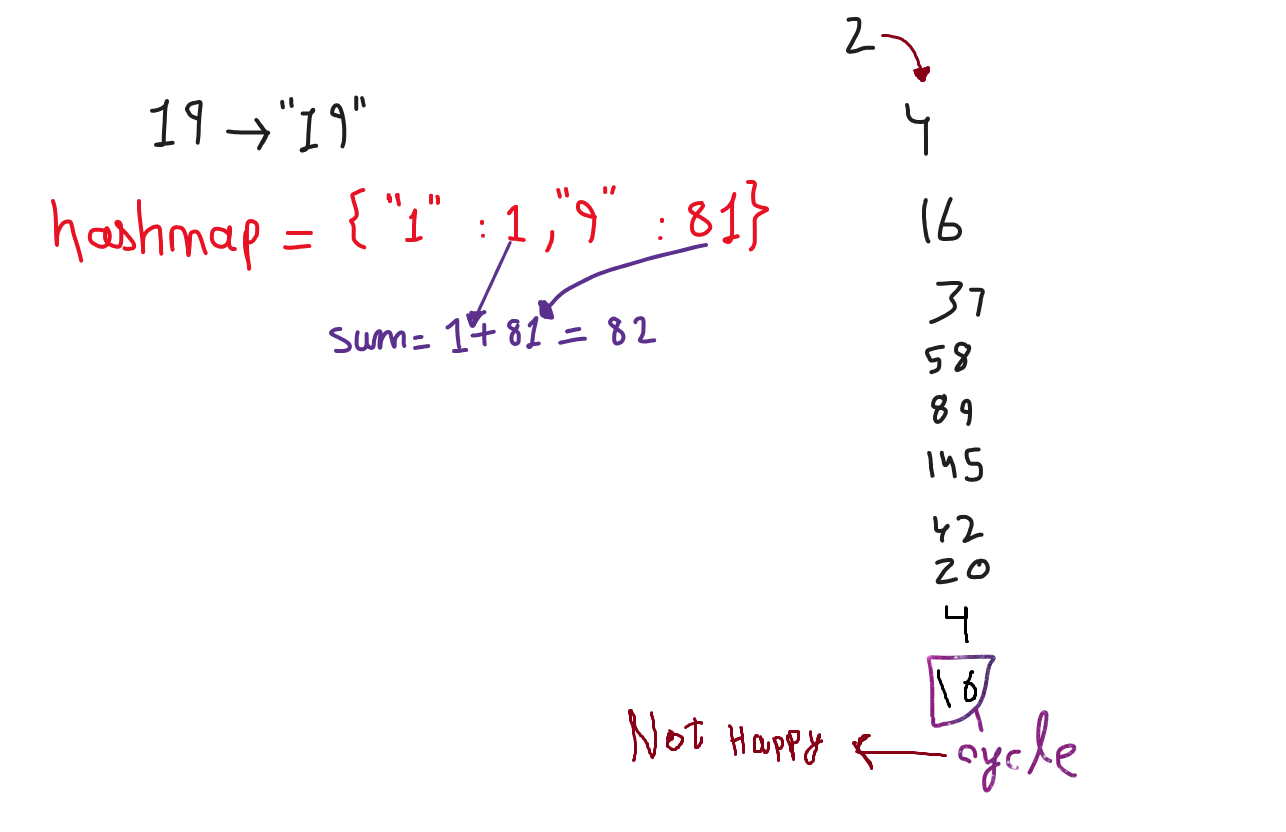 19 → "19"
hashmap = { "1" : 1 , "9" : 81}
sum = 1 + 81 = 82
2
4
16
37
58
89
145
42
20
4
16
cycle
Not Happy